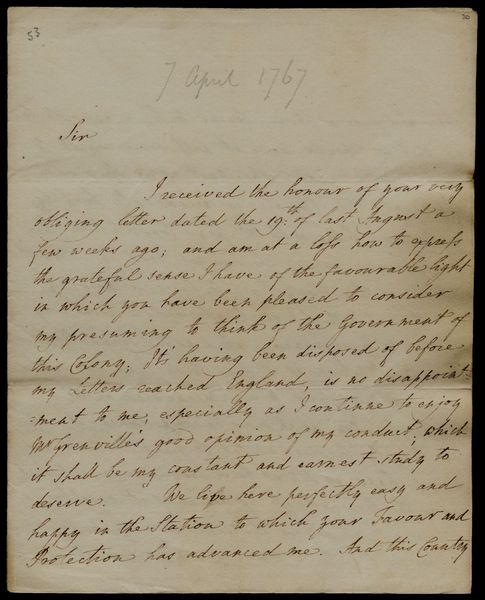 53
30
7 April 1767
Sir
I received the honour of your very
obliging letter dated the 19th. of last August a
few weeks ago; and am at a loss how to express
the grateful sense I have of the favourable light
in which you have been pleased to consider
my presuming to think of the Government of
this Colony; It's having been disposed of before
my Letters reached England, is no disappoint-
-ment to me; especially as I continue to enjoy
Mr Grenville's good opinion of my conduct, which
it shall be my constant and earnest study to
deserve. We live here perfectly easy and
happy in the Station to which your Favour and
Protection has advanced me. And this Country